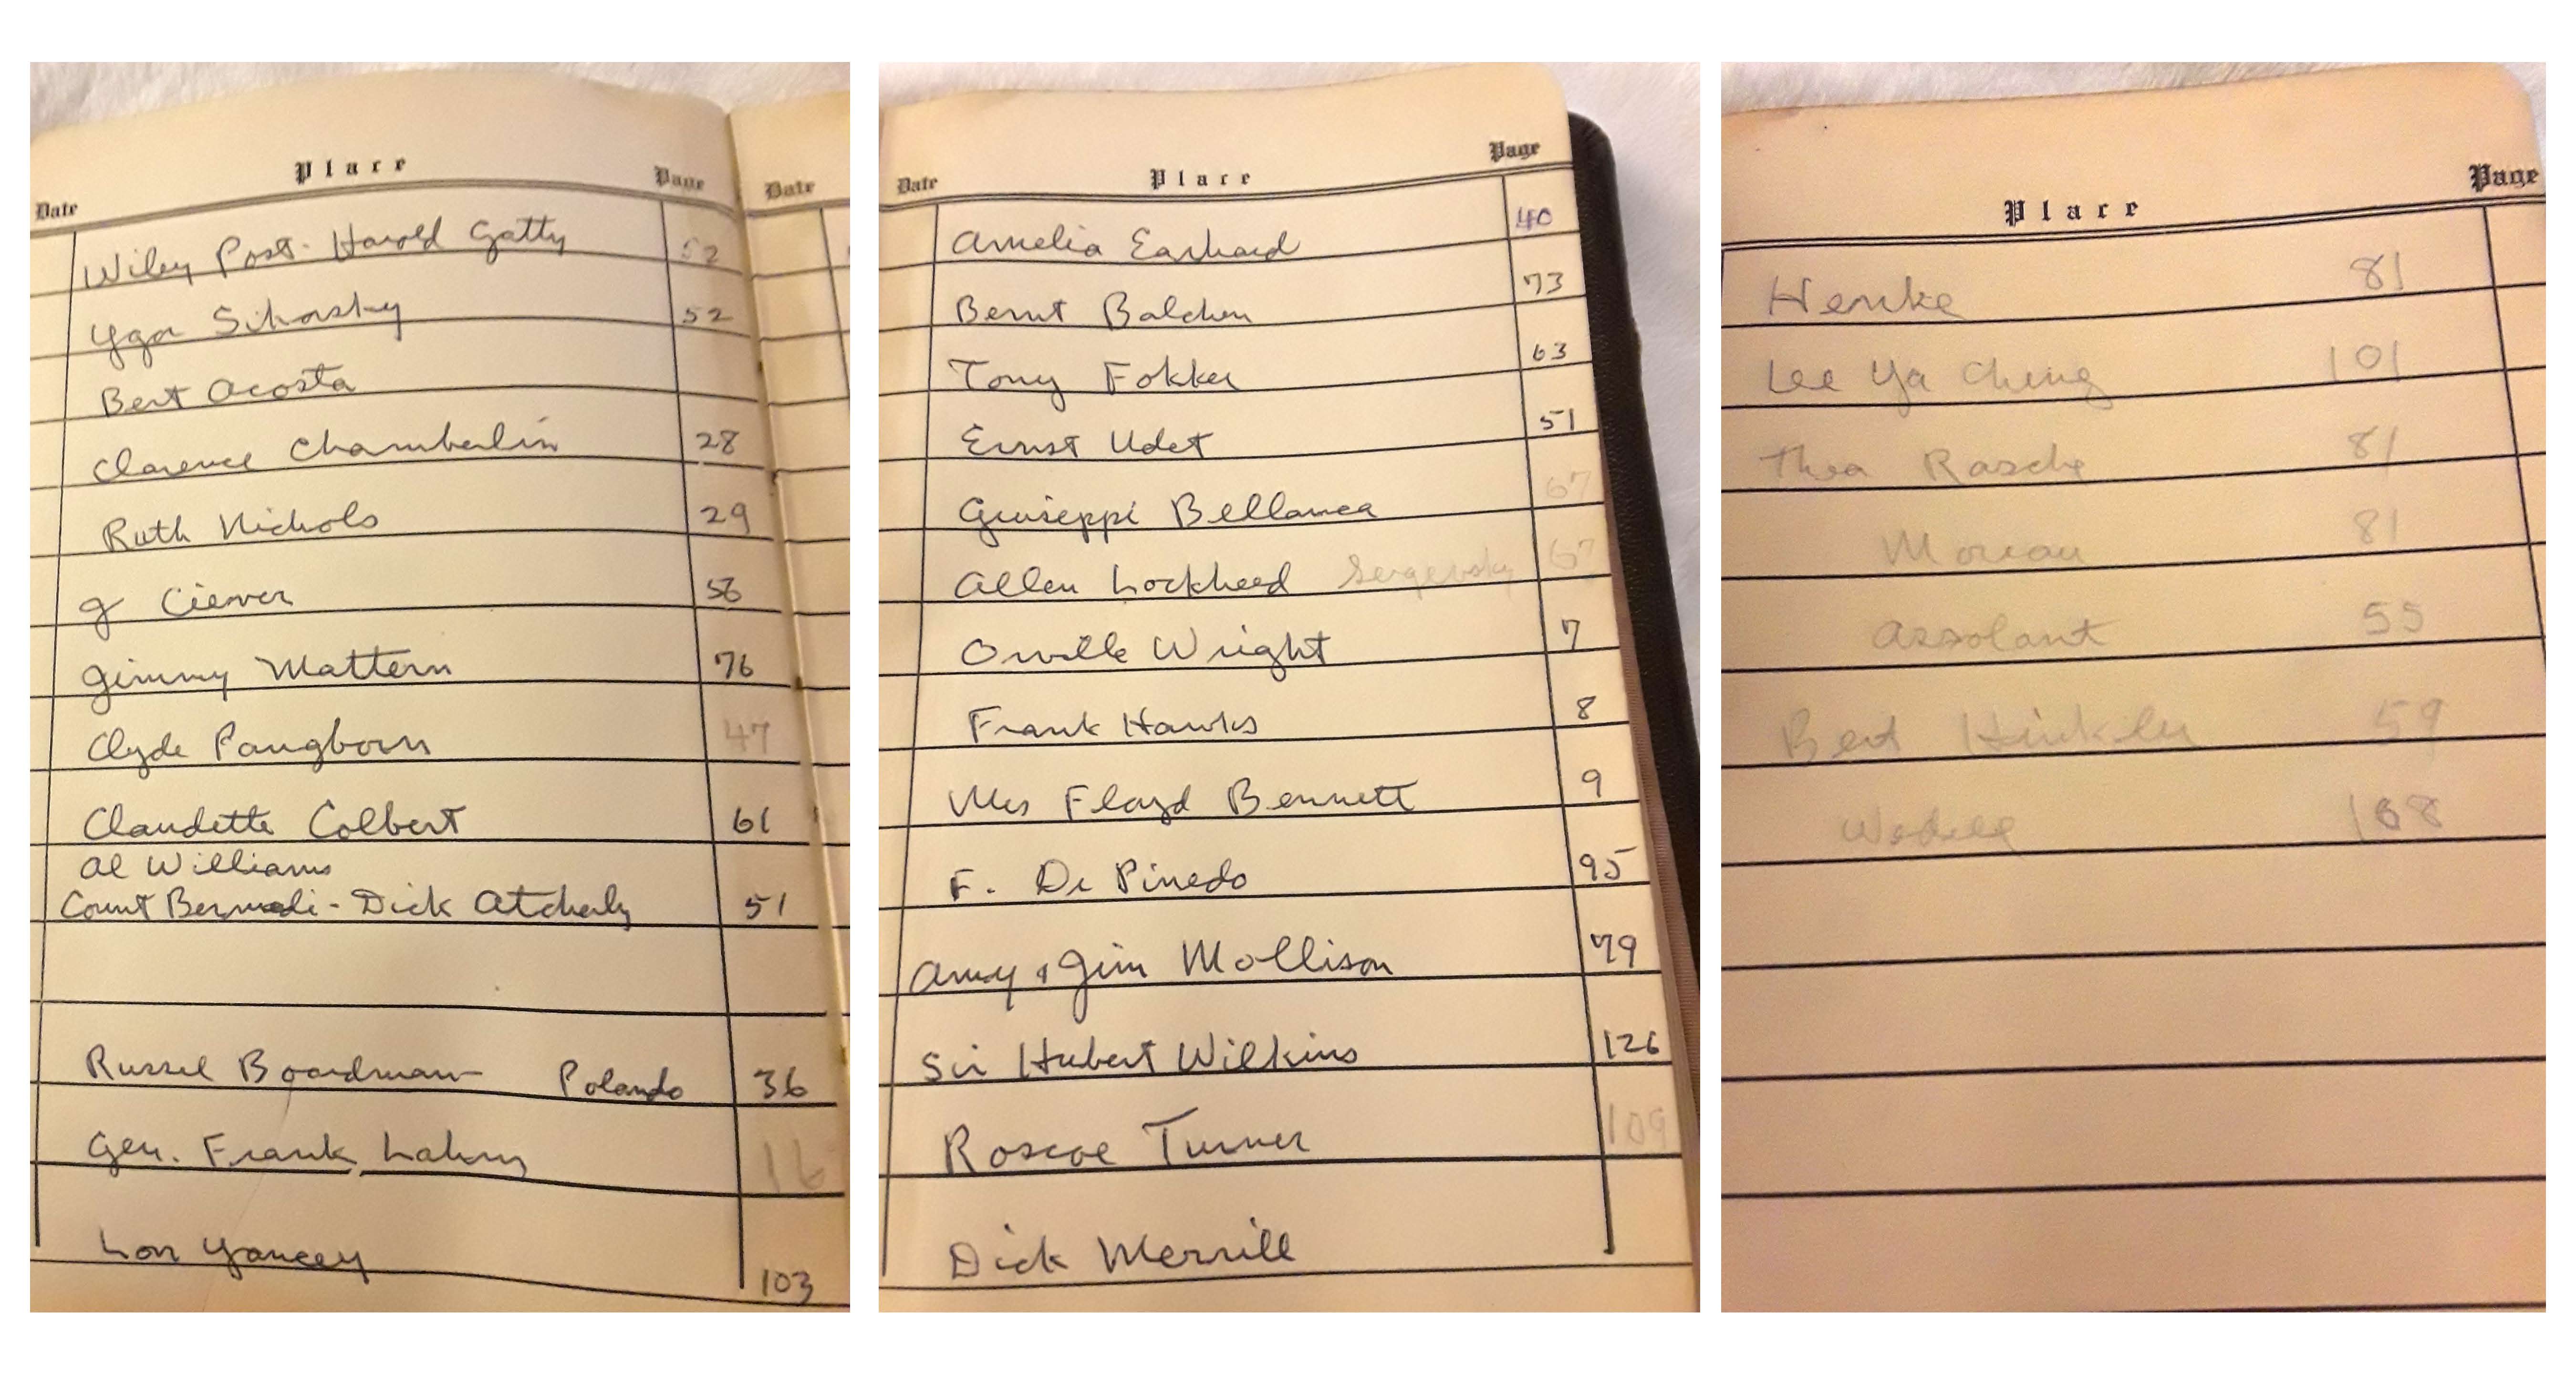 Date Place Page Date
Wiley Post - Harold Gatty 52
Ygor Sikorsky 52
Bert Acosta
Clarence Chamberlin 28
Ruth Nichols 29
J Cierver 56
Jimmy Mattern 76
Clyde Pangborn 47
Claudette Colbert 61
Al Williams
Count Bernadi - Dick Atcherly 51
Russel Boardman Polando 36
Gen. Frank Lahm 16
Lon Yancey 103
Date Place Page
Amelia Earhard 40
Bernt Balchen 73
Tony Fokker 63
Ernst Udet 51
Giuseppi Bellanca 67
Allen Lockheed Sergevsky 67
Orville Wright 7
Frank Hawks 8
Mrs Floyd Bennett 9
F. De Pinedo 95
Amy & Jim Mollison 79
Sir Hubert Wilkins 126
Roscoe Turner 109
Dick Merrill
Place Page
Henke 81
Lee Ya Ching 101
Thea Rasche 81
Moreau 81
Assolant 55
Bert Hinkler 59
108